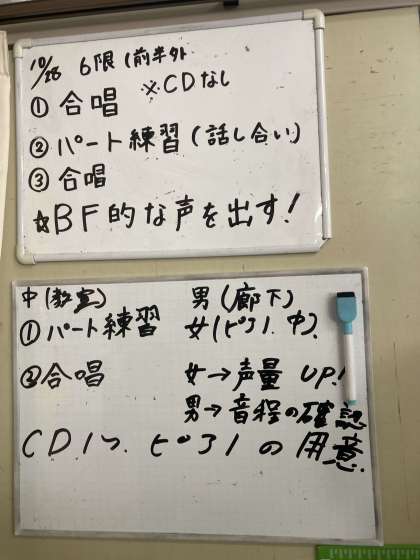 10/28 6限(前半外
※CDなし
① 合唱
② パート練習(話し合い)
③ 合唱
☆BF的な声を出す!
中(教室) 男(廊下)
① パート練習 女(ピアノ.中).
② 合唱 女→声量 UP!
男→音程の確認
CD1つ. ピアノの用意.